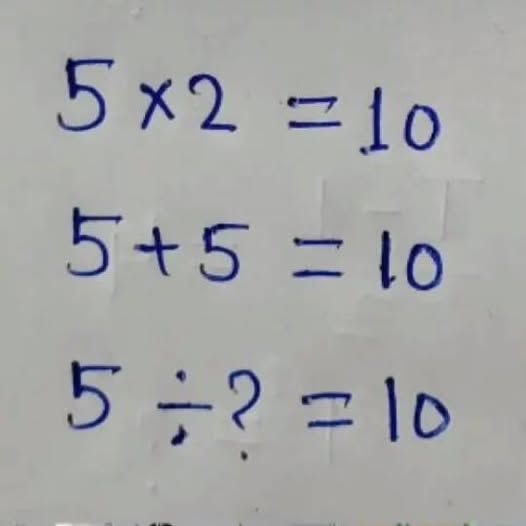 5 × 2 = 10
5 + 5 = 10
5 ÷ ? = 10